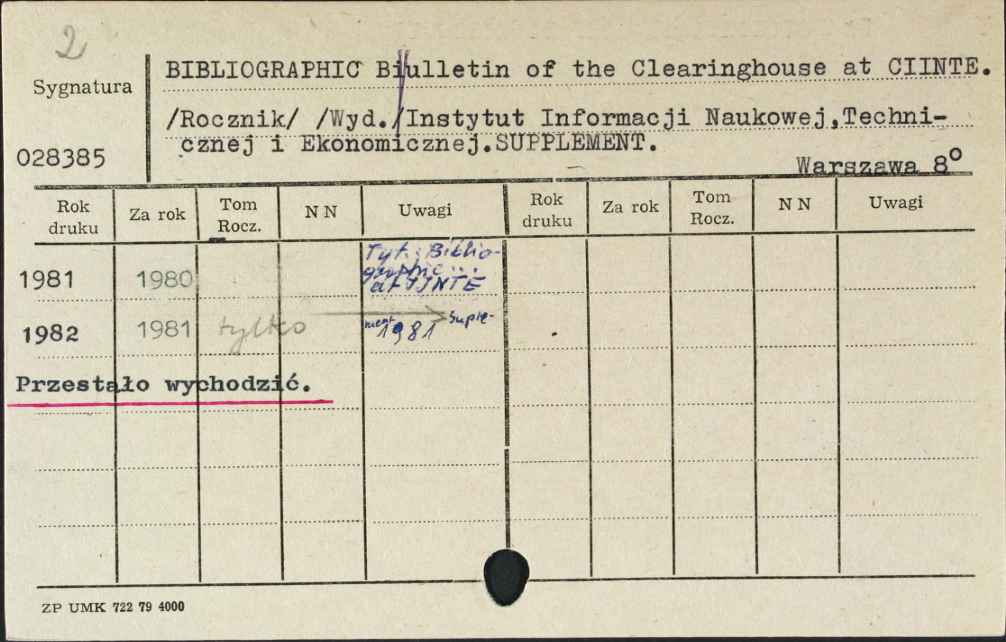 2
Sygnatura
BIBLIOGRAPHIC Biulletin of the Clearinghouse at CIINTE.
/Rocznik/ /Wyd./Instytut Informacji Naukowej,Techni-
cznej i Ekonomicznej.SUPPLEMENT.
028385
Warszawa 8°
Rok druku Za rok Tom Rocz. N N Uwagi Rok druku Za rok Tom Rocz. N N Uwagi
Tyt.: Biblio-
graphic...
at IINTE
1981 1980
1982 1981 tylko Suple-
ment 1981
Przestało wychodzić.
ZP UMK 722 79 4000